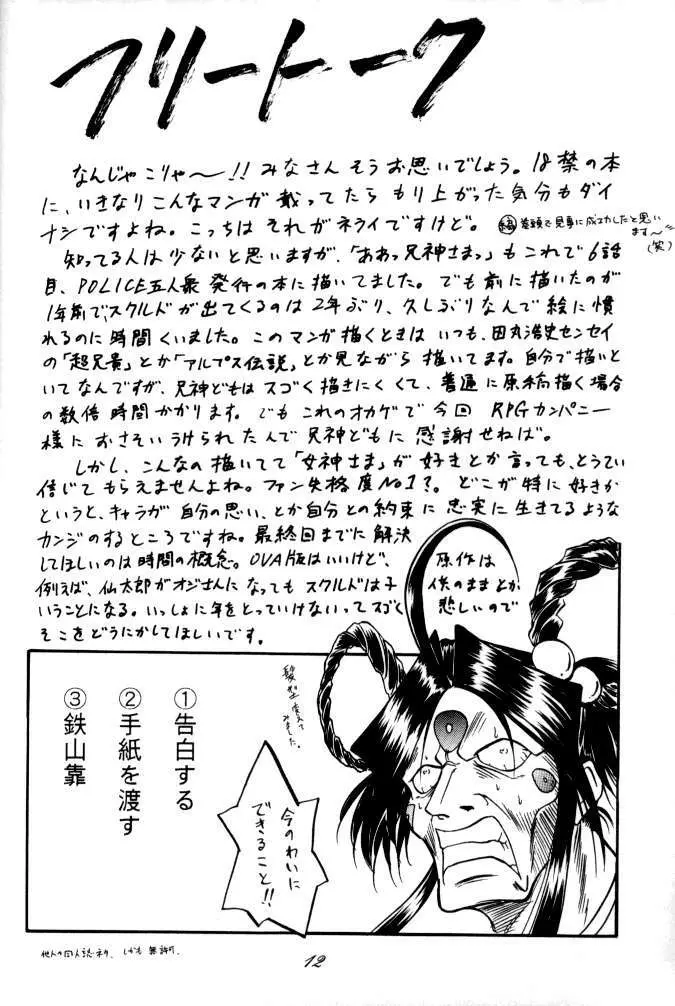 フリートーク
なんじゃこりゃ〜!! みなさんそうお思いでしょう。18禁の本
に、いきなりこんなマンガ載ってたらもり上がった気分もダイ
ナシですよね。こっちはそれがネライですけど。
編 巻頭で見事に成功したと思い
ます〜
(笑)
知ってる人は少ないと思いますが、「ああっ兄神さまっ」もこれで6話
目、POLICE五人衆発行の本に描いてました。でも前に描いたのが
1年前で、スクルドが出てくるのは2年ぶり、久しぶりなんで絵に慣
れるのに時間くいました。このマンガ描くときはいつも、田丸浩史センセイ
の「超兄貴」とか「アルプス伝説」とか見ながら描いてます。自分で描いと
いてなんですが、兄神どもはスゴく描きにくくて、普通に原稿描く場合
の数倍時間かかります。でもこれのオカゲで今回RPGカンパニー
様におさそいうけられたんで兄神どもに感謝せねば。
しかし、こんなの描いてて「女神さま」が好きとか言っても、とうてい
信じてもらえませんよね。ファン失格度No1?。どこが特に好きか
というと、キャラが自分の思い、とか自分との約束に忠実に生きてるような
カンジのするところですね。最終回までに解決
してほしいのは時間の概念。OVA版はいいけど、原作は
例えば、仙太郎がオジさんになってもスクルドは子供のままとか
いうことになる。いっしょに年をとっていけないってスゴく悲しいので
そこをどうにかしてほしいです。
髪型変えて
みました。
①告白する
②手紙を渡す
③鉄山靠
今のわいに
できること!!
他人の同人誌ネタ、しかも無許可、
12